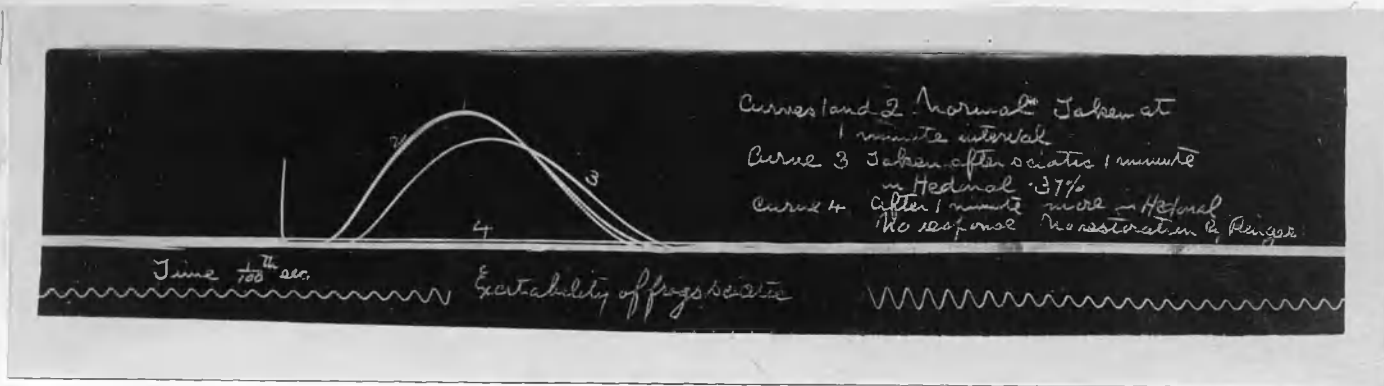 1
2
3
4
Curves 1 and 2 Normal Taken at
1 minute interval
Curve 3 Taken after sciatic 1 minute
in Hedonal .37%
Curve 4 After 1 minute more in Hedonal
No response No restoration by Ringer
Time 1/100th sec.
Excitability of frogs sciatic